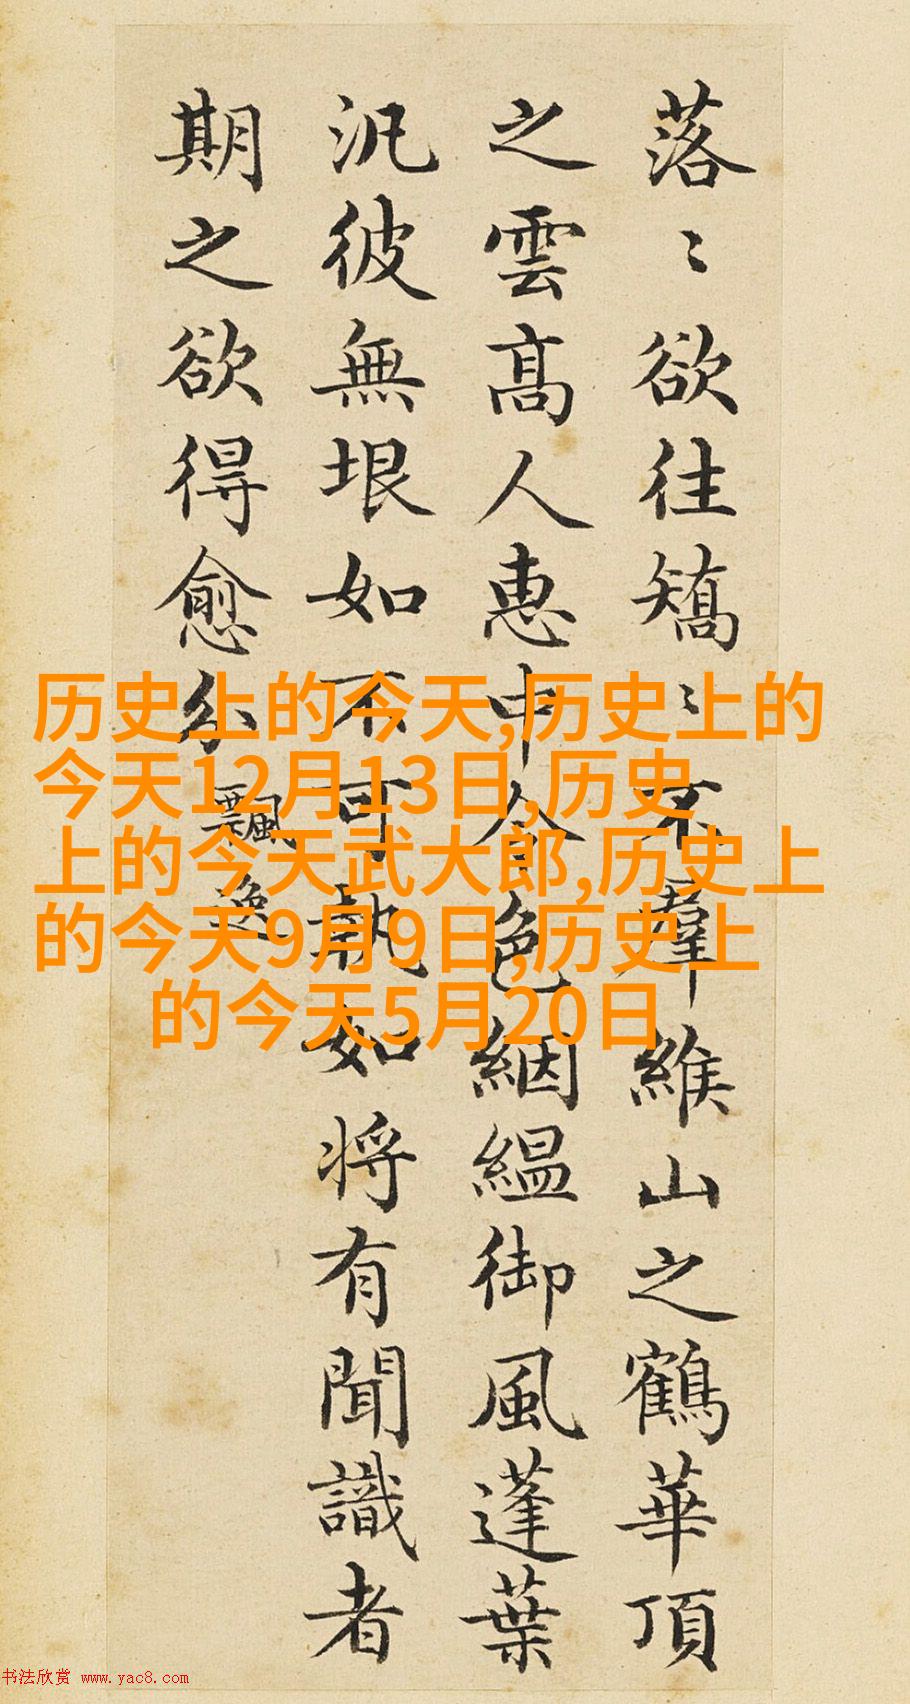 落〻欲往矯〻不羣緱山之鶴華頂
之雲髙人惠中令色絪縕御風蓬葉
汎彼無垠如不可執如將有聞識者
期之欲得愈分
飄逸
历史上的今天,历史上的
今天12月13日,历史
上的今天武大郎,历史上
的今天9月9日,历史上
的今天5月20日
书法欣赏 www.yac8.com